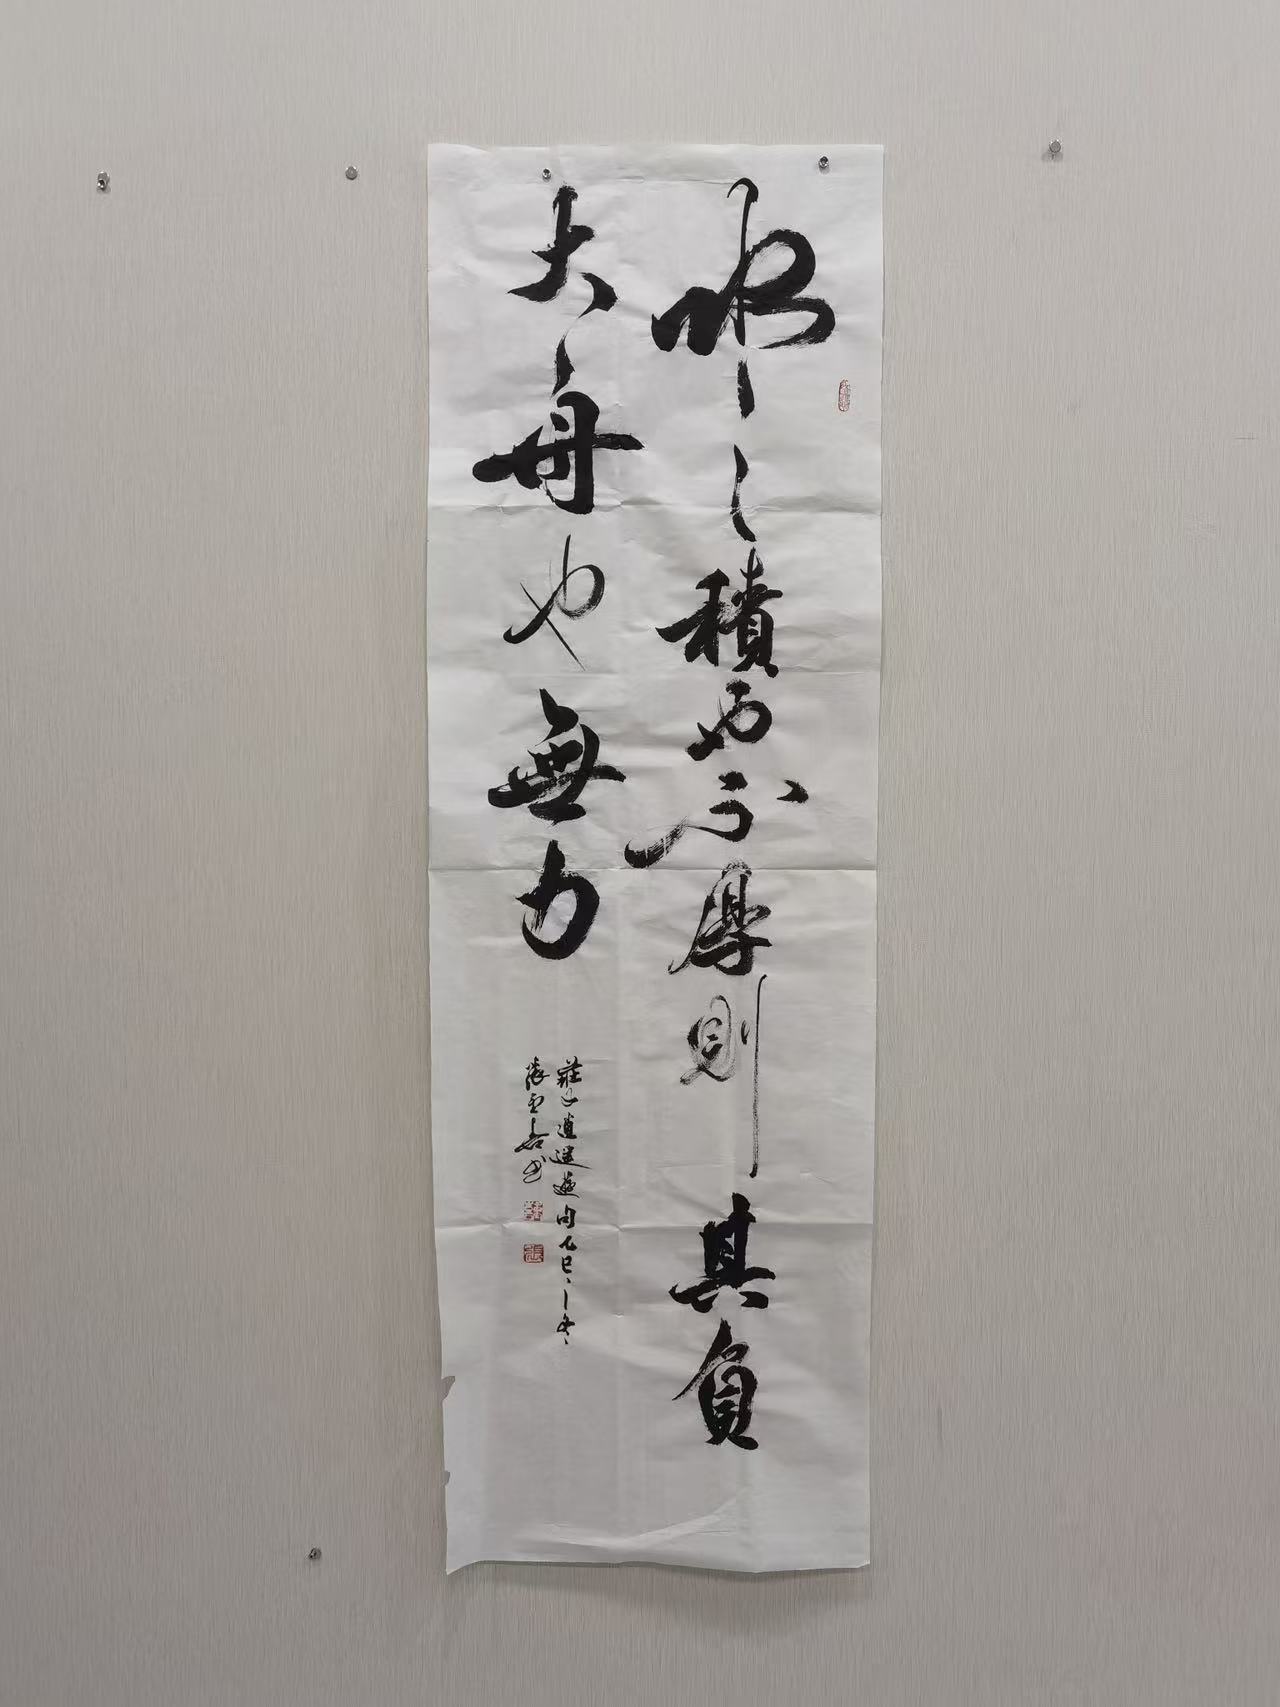 水之積也不厚則其負
大舟也無力
莊子逍遥遊句乙巳之冬
張
書